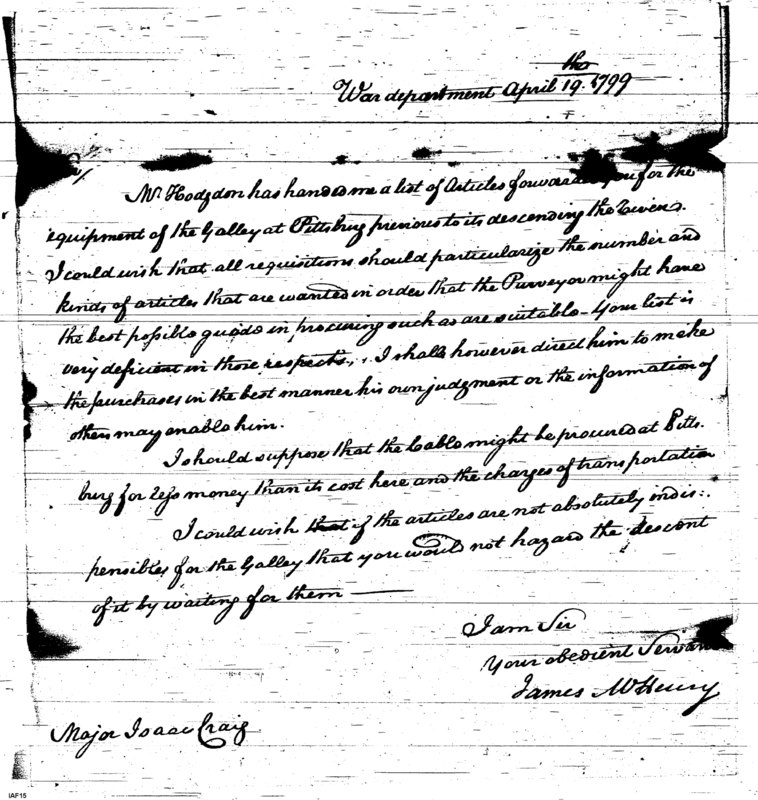 War department April 19.th 1799
Sir
Mr Hodgdon has handed me a list of Articles forwarded you for the
equipment of the Galley at Pittsburg previous to its descending the River.
I could wish that all requisitions should particularize the number and
kinds of articles that are wanted in order that the Purveyor might have
the best possible guide in procuring such as are suitable – Your list is
very deficient in those respects. I shall however direct him to make
the purchases in the best manner his own judgment or the information of
others may enable him.
I should suppose that the Cable might be procured at Pitts.
burg for less money than its cost here and the charges of transportation
I could wish that if the articles are not absolutely indis-.
pensibles for the Galley that you would not hazard the descent
of it by waiting for them —
I am Sir
Your obedient Servant
James McHenry
Major Isaac Craig
IAF15